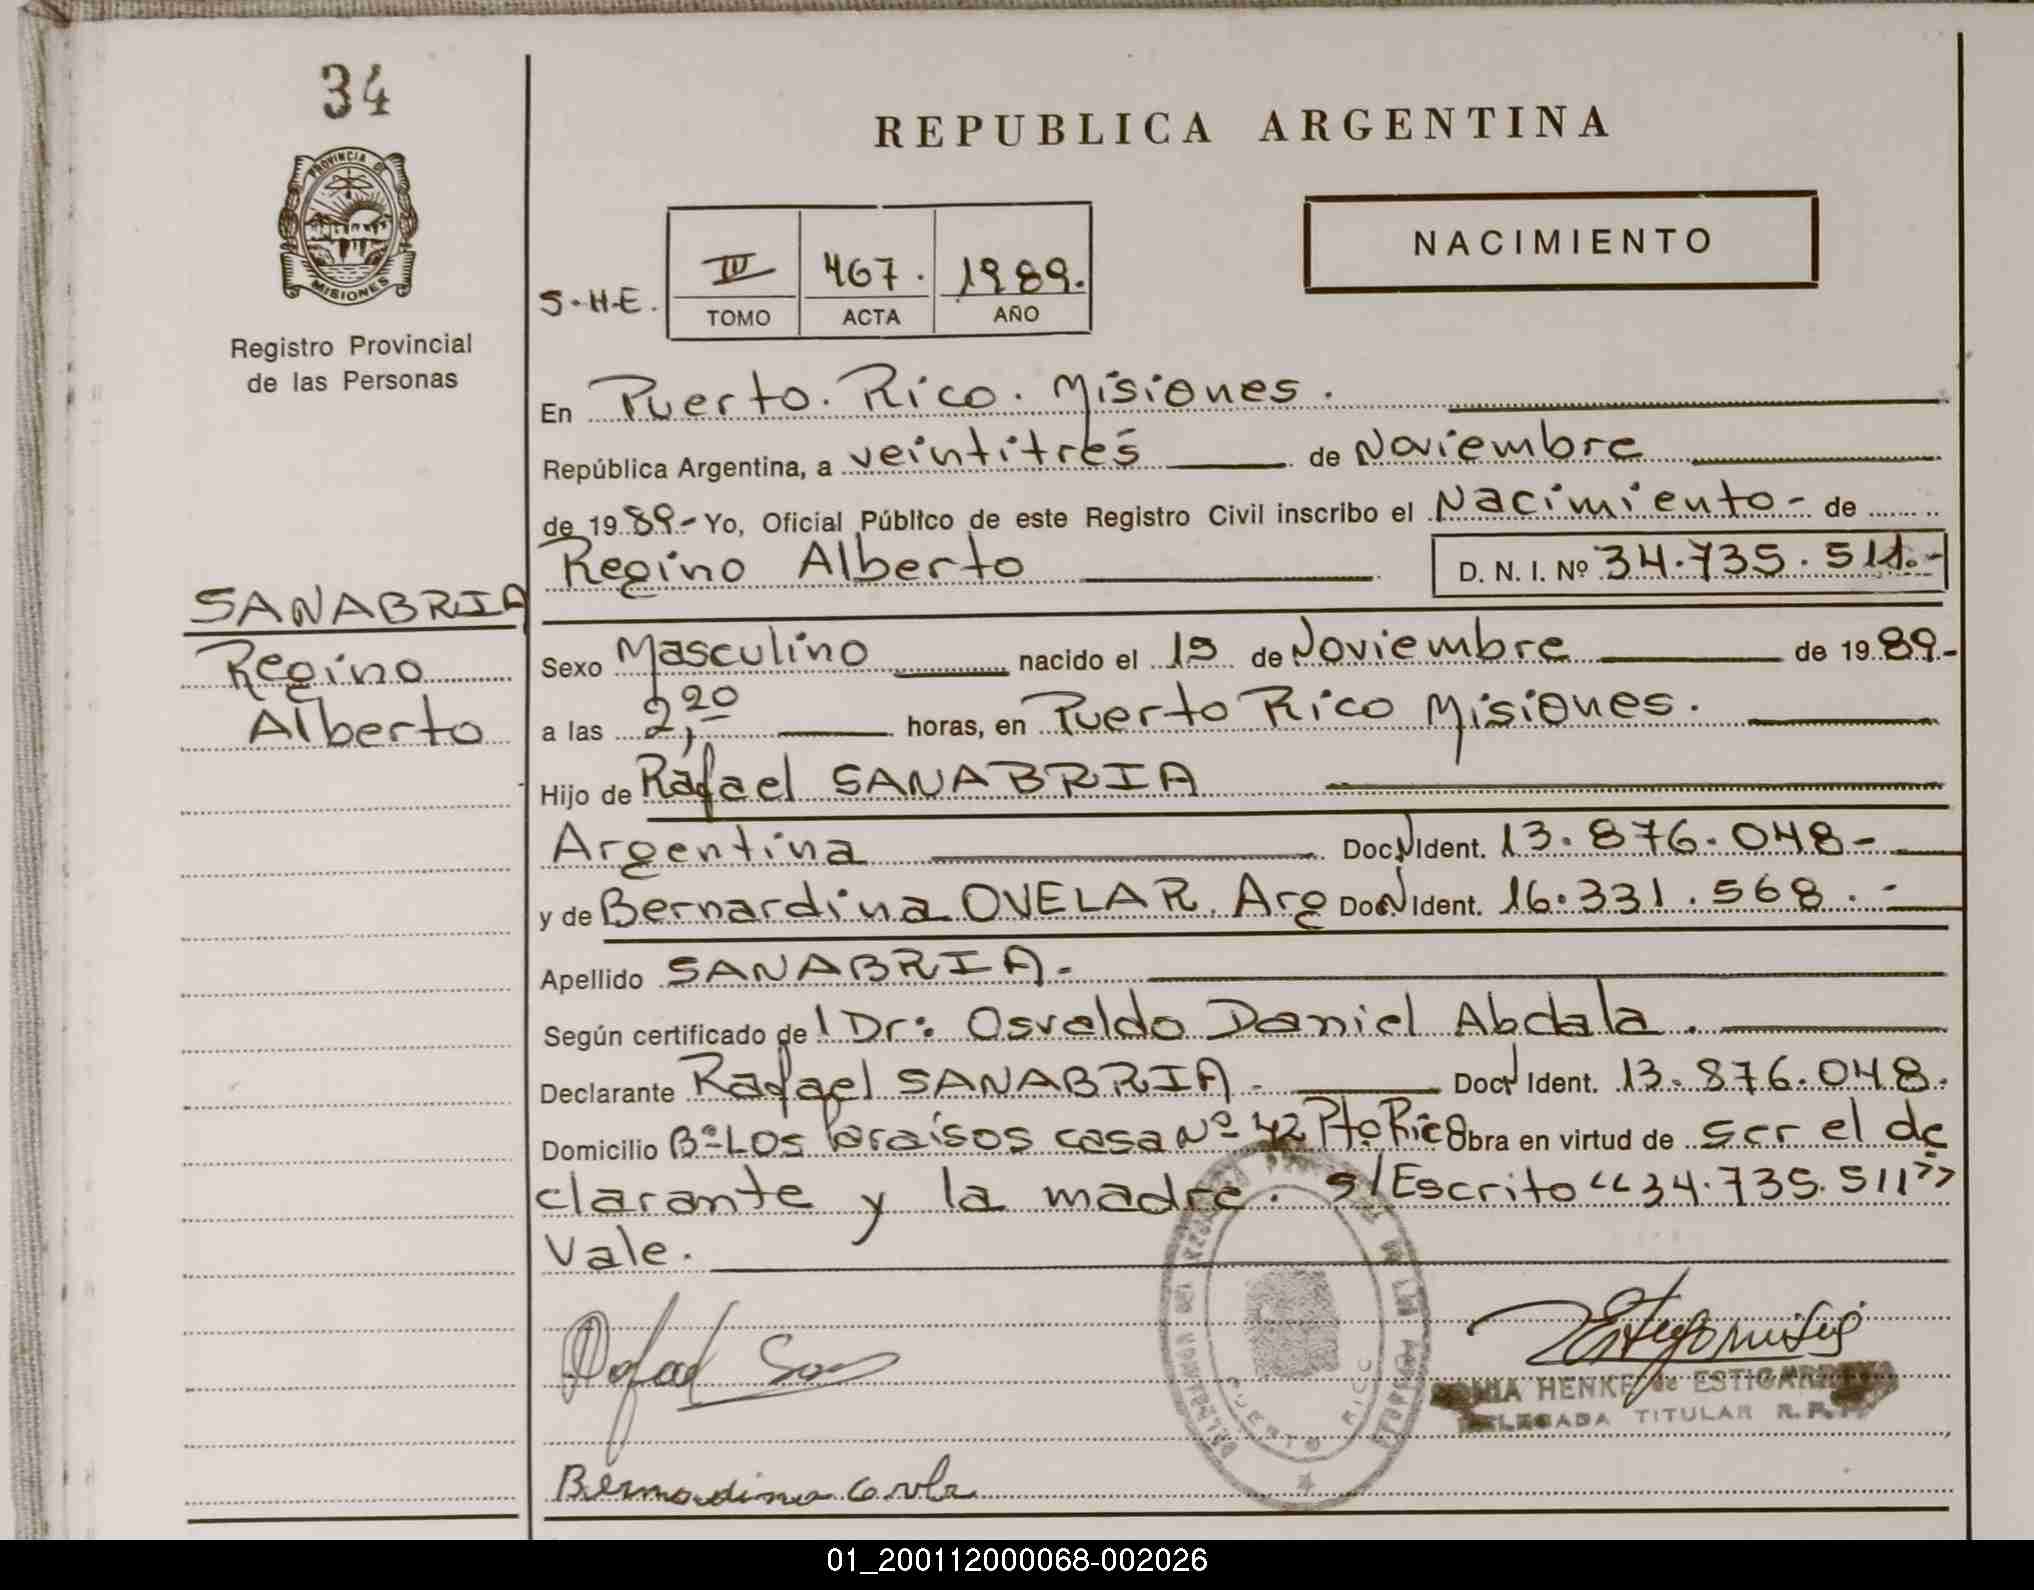 34
PROVINCIA DE
MISIONES
Registro Provincial
de las Personas
REPUBLICA ARGENTINA
NACIMIENTO
S-H-E.
IV 467. 1989.
TOMO ACTA AÑO
En Puerto. Rico. Misiones.
República Argentina, a veintitrés de Noviembre
de 1989.- Yo, Oficial Público de este Registro Civil inscribo el Nacimiento - de
Regino Alberto D. N. I. Nº 34.735.511.-
SANABRIA
Regino
Alberto
Sexo Masculino nacido el 19 de Noviembre de 1989.-
a las 2,20 horas, en Puerto Rico Misiones.
Hijo de Rafael SANABRIA
Argentina Doc. N Ident. 13.876.048-
y de Bernardina OVELAR. Arg Doc. N Ident. 16.331.568.-
Apellido SANABRIA.-
Según certificado de l Dr: Osvaldo Daniel Abdala.
Declarante Rafael SANABRIA.- Doc. N Ident. 13.876.048.
Domicilio Bº Los Paraísos casa Nº 42 Pto Rico Obra en virtud de ser el de
clarante y la madre. s/Escrito "34.735.511"
Vale.
Rafael San
Bernardina
PUERTO RICO
HENKE de ESTIGARRIBIA
DELEGADA TITULAR R.P.P.
01_200112000068-002026